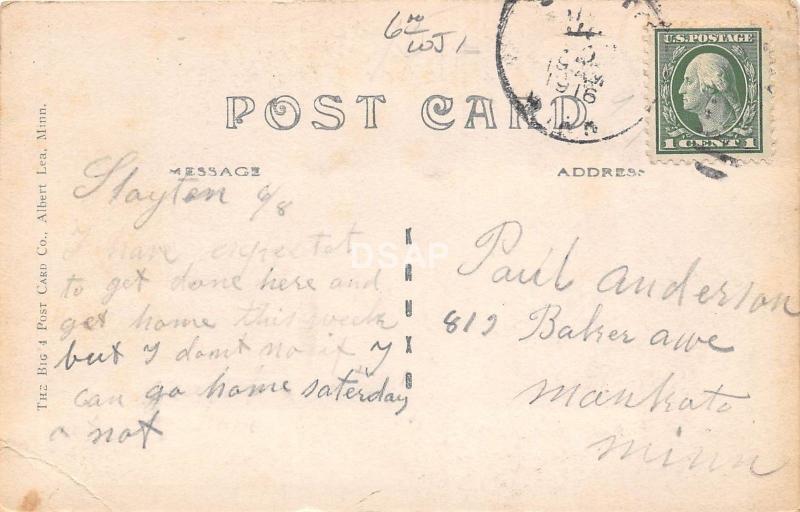 6 WJL
U.S. POSTAGE
1 CENT 1
1916
POST CARD
MESSAGE
ADDRESS
Slayton 6/8
I have expectet
to get done here and
get home this week
but I dont no if I
can go home saterday
o not
DSAP
KRUXO
Paul anderson
819 Baker awe
mankato
minn
THE BIG 4 POST CARD CO., Albert Lea, Minn.